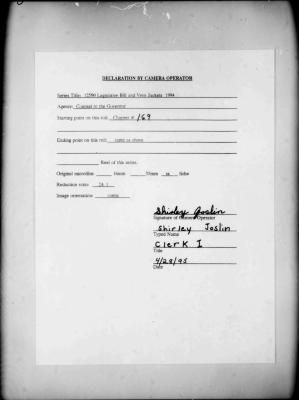 DECLARATION BY CAMERA OPERATOR
Series Title: 12590 Legislative Bill and Veto Jackets 1994
Agency: Counsel to the Governor
Starting point on this roll: Chapter # 169
Ending point on this roll: same as above
Reel of this series.
Original microfilm: 16mm 35mm xx fiche
Reduction ratio: 24:1
Image orientation: comic
Shirley Joslin
Signature of Camera Operator
Shirley Joslin
Typed Name
Clerk I
Title
4/28/95
Date